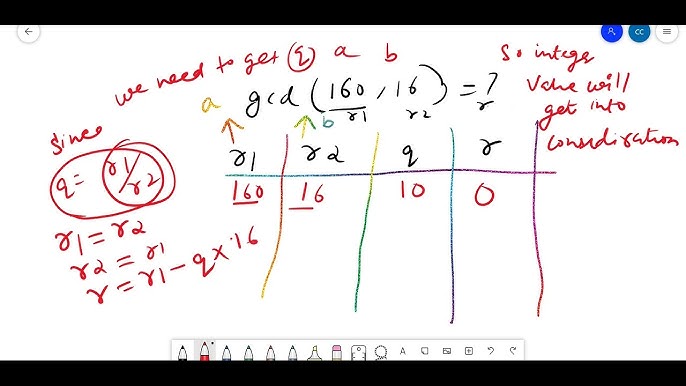 CC
we need to get q a b
So integer
value will
get into
considiration
a gcd (160, 16) = ?
r1 r2 r
b
since
q = r1/r2
r1 = r2
r2 = r1
r = r1 - q x 16
r1 r2 q r
160 16 10 0
A